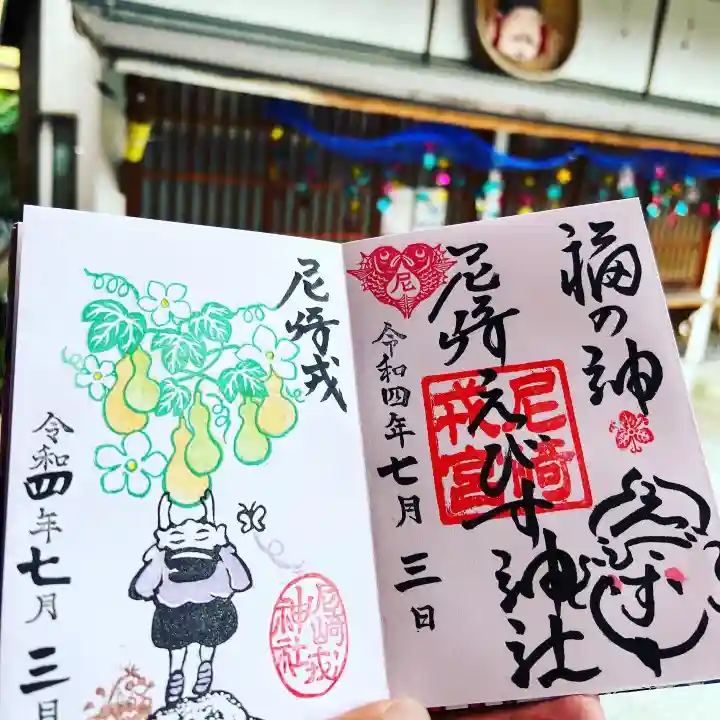 福の神
尼崎えびす神社
尼
尼崎
戎宮
令和四年七月三日
えびす
尼崎戎
令和四年七月三日
尼崎戎
神社